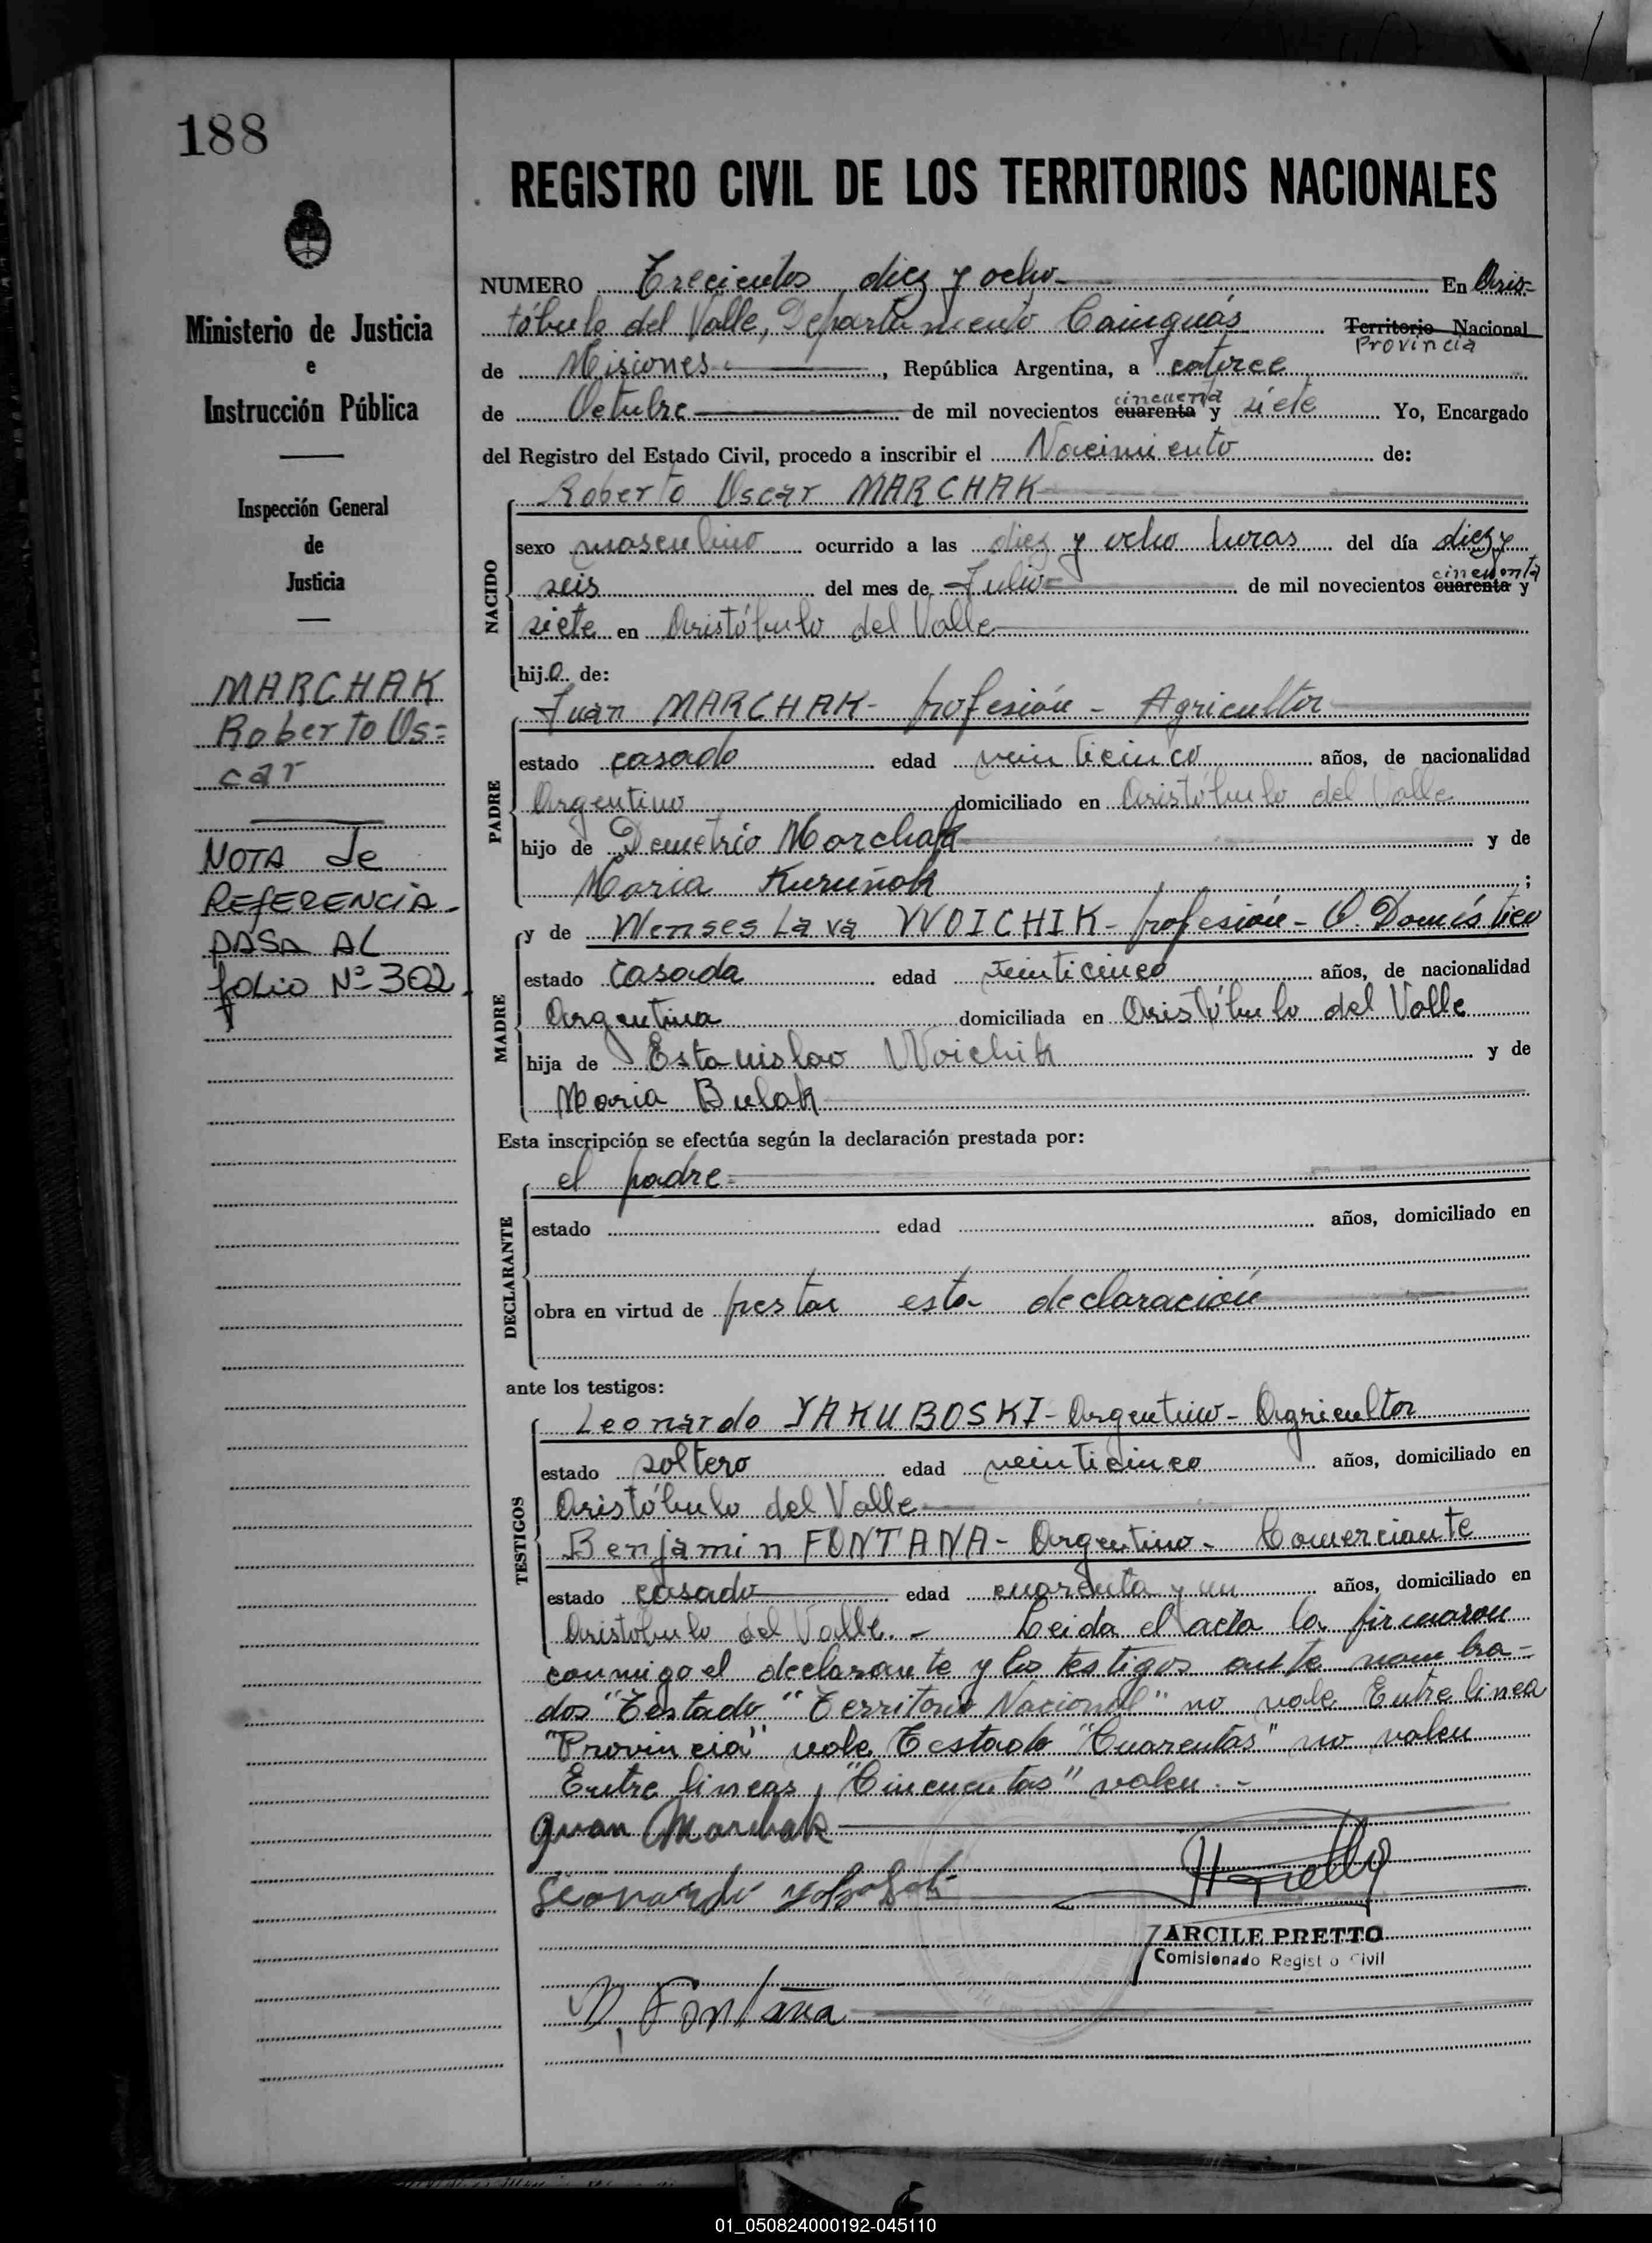 188
Ministerio de Justicia
e
Instrucción Pública
Inspección General
de
Justicia
MARCHAK
Roberto Os=
car
NOTA de
REFERENCIA
PASA AL
folio Nº 302
REGISTRO CIVIL DE LOS TERRITORIOS NACIONALES
NUMERO Trecientos diez y ocho En Aris=
tóbulo del Valle, Departamento Cainguás Territorio Nacional
Provincia
de Misiones, República Argentina, a catorce
de Octubre de mil novecientos cuarenta cincuenta y siete Yo, Encargado
del Registro del Estado Civil, procedo a inscribir el Nacimiento de:
Roberto Oscar MARCHAK
NACIDO
sexo masculino ocurrido a las diez y ocho horas del día diez y
seis del mes de Julio de mil novecientos cuarenta cincuenta y
siete en Aristóbulo del Valle
hijo de:
PADRE
Juan MARCHAK- profesión - Agricultor
estado casado edad veinticinco años, de nacionalidad
Argentino domiciliado en Aristóbulo del Valle
hijo de Demetrio Marchak y de
Maria Kuruñak ;
MADRE
y de Wenseslava WOICHIK- profesión - Q. Doméstico
estado casada edad veinticinco años, de nacionalidad
Argentina domiciliada en Aristóbulo del Valle
hija de Estanislao Woichik y de
Maria Bulak
Esta inscripción se efectúa según la declaración prestada por:
DECLARANTE
el padre
estado edad años, domiciliado en
obra en virtud de prestar esta declaración
ante los testigos:
TESTIGOS
Leonardo YAKUBOSKI- Argentino - Agricultor
estado soltero edad veinticinco años, domiciliado en
Aristóbulo del Valle
Benjamin FONTANA- Argentino - Comerciante
estado casado edad cuarenta y un años, domiciliado en
Aristobulo del Valle. - Leida el acta la firmaron
conmigo el declarante y los testigos ante nombra-
dos "Testado "Territorio Nacional" no vale Entre linea
"Provincia" vale Testado "Cuarentas" no valen
Entre lineas, "Cincuentas" valen. -
Juan Marchak
Leonardo
ARCILE PRETTO
Comisionado Registro Civil
Fontana
01_050824000192-045110